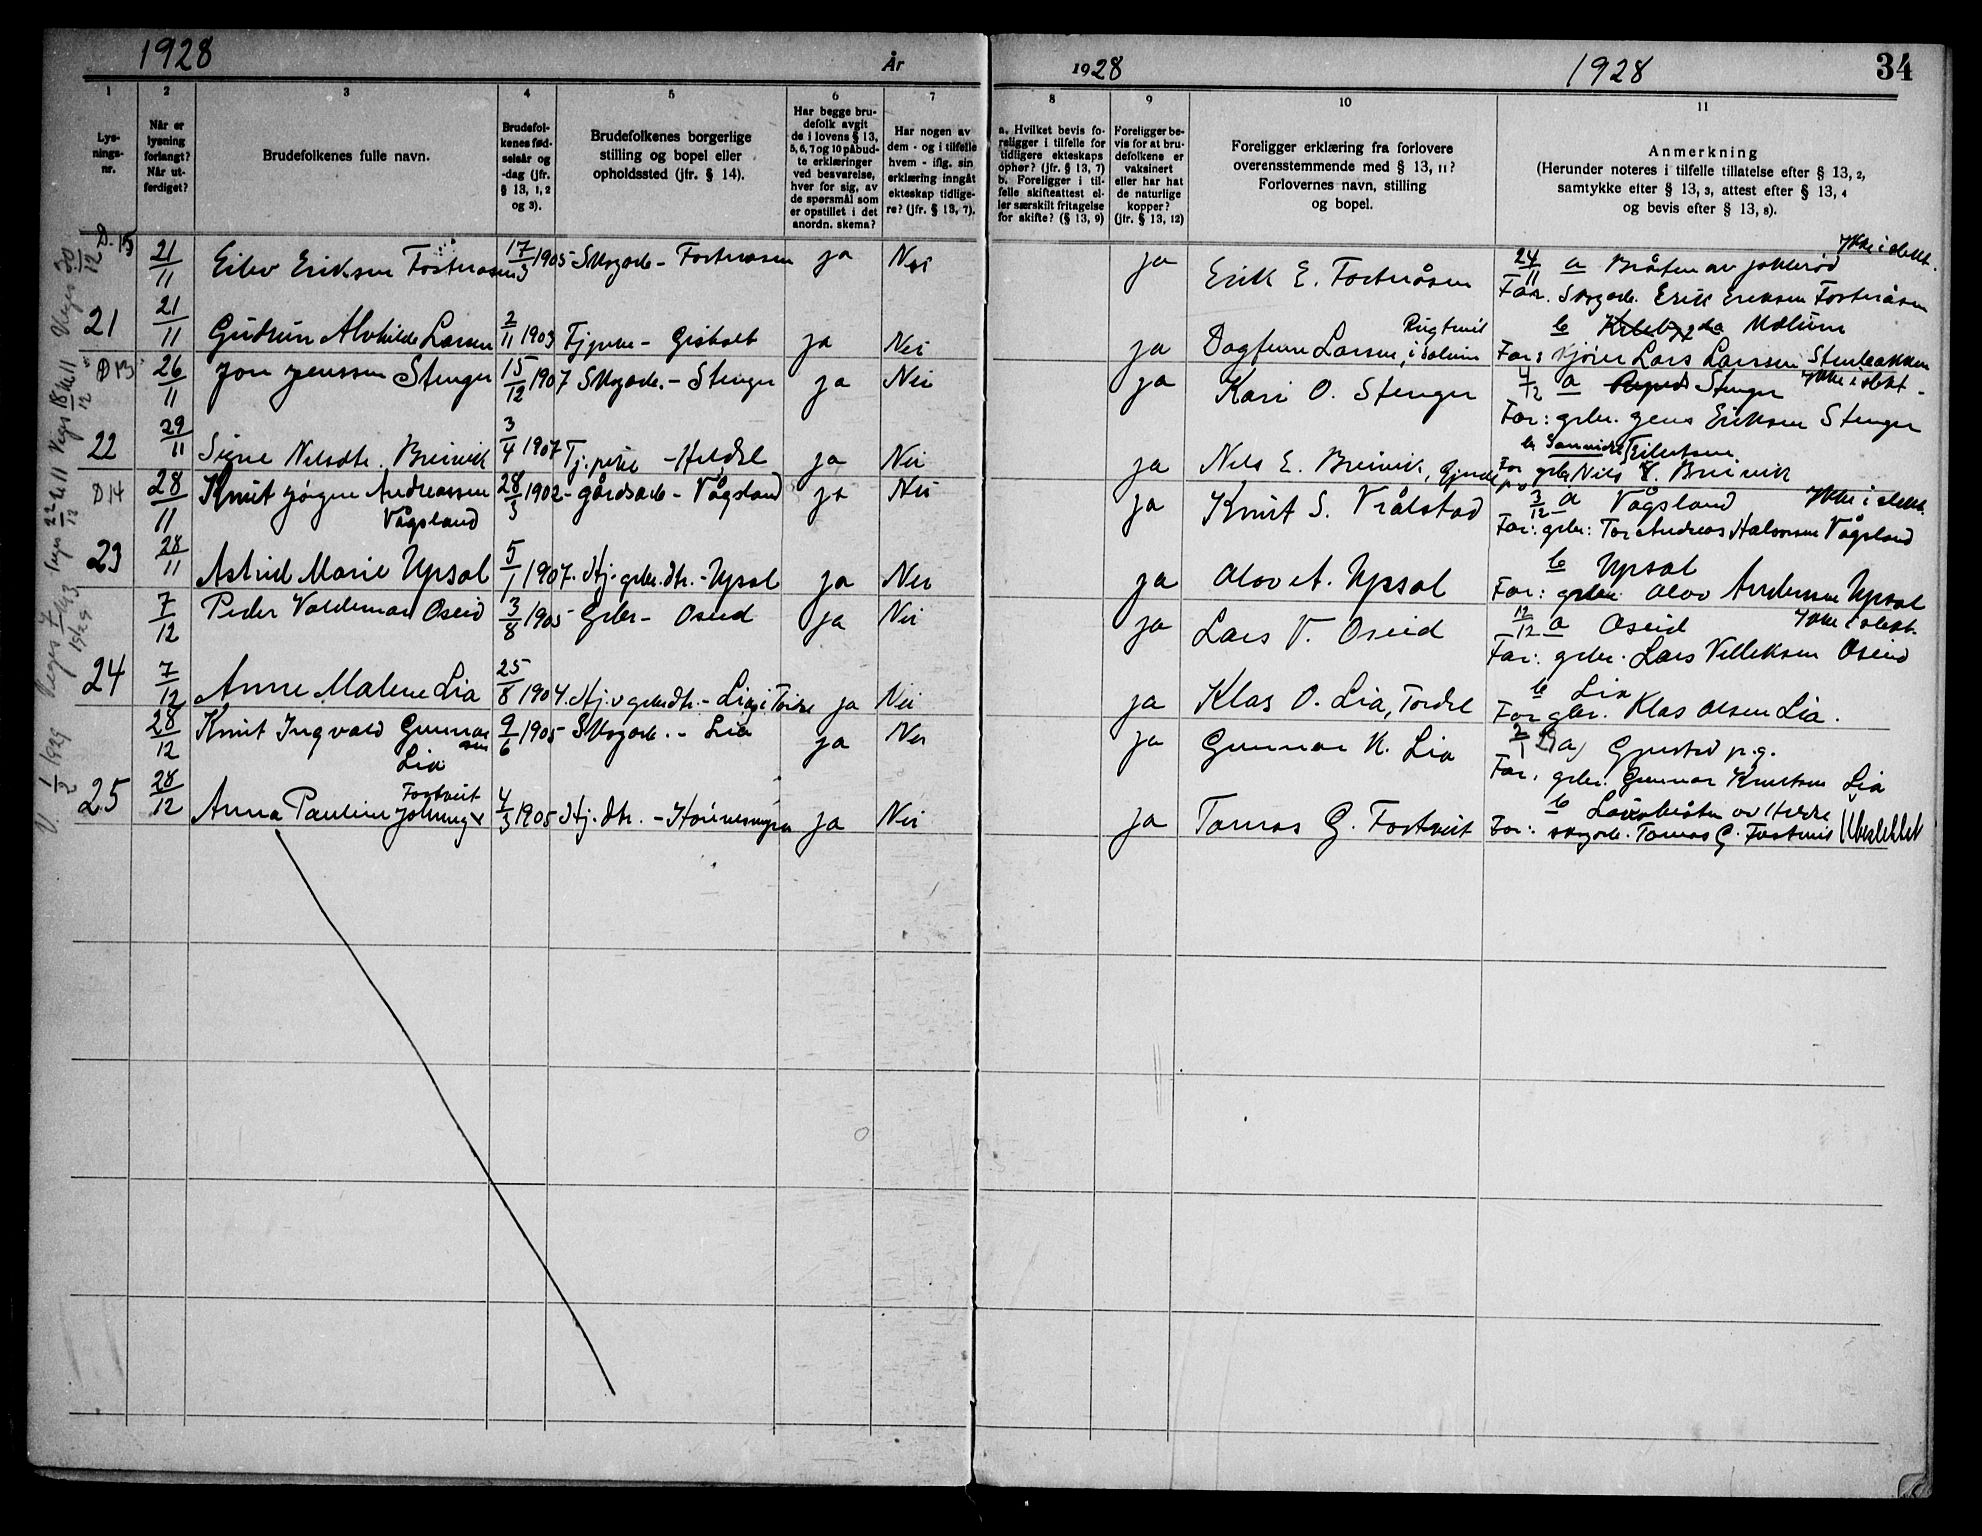 1928 År 1928 1928 34
1 2 3 4 5 6 7 8 9 10 11
Lysningsnr.
Når er lysning forlangt? Når utferdiget?
Brudefolkenes fulle navn.
Brudefolkenes fødselsår og -dag (jfr. § 13, 1, 2 og 3).
Brudefolkenes borgerlige stilling og bopel eller opholdssted (jfr. § 14).
Har begge brudefolk avgit de i lovens § 13, 5, 6, 7 og 10 påbudte erklæringer ved besvarelse, hver for sig, av de spørsmål som er opstillet i det anordn. skema?
Har nogen av dem - og i tilfelle hvem - iflg. sin erklæring inngåt ekteskap tidligere? (jfr. § 13, 7).
a. Hvilket bevis foreligger i tilfelle for tidligere ekteskaps ophør? (jfr. § 13, 7) b. Foreligger i tilfelle skifteattest eller særskilt fritagelse for skifte? (§ 13, 9)
Foreligger bevis for at brudefolkene er vaksinert eller har hat de naturlige kopper? (jfr. § 13, 12)
Foreligger erklæring fra forlovere overensstemmende med § 13, 11? Forlovernes navn, stilling og bopel.
Anmerkning (Herunder noteres i tilfelle tillatelse efter § 13, 2, samtykke efter § 13, 3, attest efter § 13, 4 og bevis efter § 13, 8).
21/11 Eilev Eriksen Fosteråsen 17/3 1905 Skogarb. - Fosteråsen ja Nei ja Erik E. Fosteråsen 24/11 a Bråten Ikke i slekt.
Far. Skogarb. Erik Eriksen Fosteråsen
21 21/11 Gudrun Alvhilde Larsen 2/11 1903 Tj.pike - Gisholt ja Nei ja Dagfinn Larsen, i Solum b Melum
Far: kjører Lars Larsen
D 13 26/11 Jon Jenssen Stenger 15/12 1907 Skogarb. - Stenger ja Nei ja Kari O. Stenger 4/12 a Stenger Ikke i slekt -
Far: grbr. Jens Eriksen Stenger
22 29/11 Signe Nilsdtr. Breivik 3/4 1907 Tj.pike ja Nei ja Nils E. Breivik b Sannidal
Far grbr. Nils Eilertsen Breivik
D 14 28/11 Knut Jørgen Andreassen Vågsland 28/3 1902 - gårdsarb - Vågsland ja Nei ja Knut S. Vrålstad 3/12 a Vågsland Ikke i slekt.
Far: grbr: Tor Andreas Halvorsen Vågsland
23 28/11 Astrid Marie Upsal 5/1 1907. Hj. grbr. dtr. - Upsal ja Nei ja Olav A. Upsal b Upsal
Far: grbr. Olav Andersen Upsal
7/12 Peder Valdemar Oseid 3/8 1905 Grbr - Oseid ja Nei ja Lars V. Oseid 12/12 a Oseid Ikke i slekt.
Far: grbr. Lars Villeksen Oseid
24 7/12 Anne Malene Lia 25/8 1904. Hj.v. grbr.dtr. - Lia i Tørdal ja Nei ja Klas O. Lia, Tørdal b Lia
Far grbr. Klas Olsen Lia.
28/12 Knut Ingvald Gunnarsen Lia 9/6 1905 Skogarb. - Lia ja Nei ja Gunnar K. Lia 2/1 29 a) Gjerstad p.g.
Far. grbr. Gunnar Knutsen Lia
25 28/12 Anna Pauline Fostveit 4/3 1905 Hj. dtr. ja Nei ja Tomas G. Fostveit b
Far: skogarb. Tomas G. Fostveit Ubeslektet